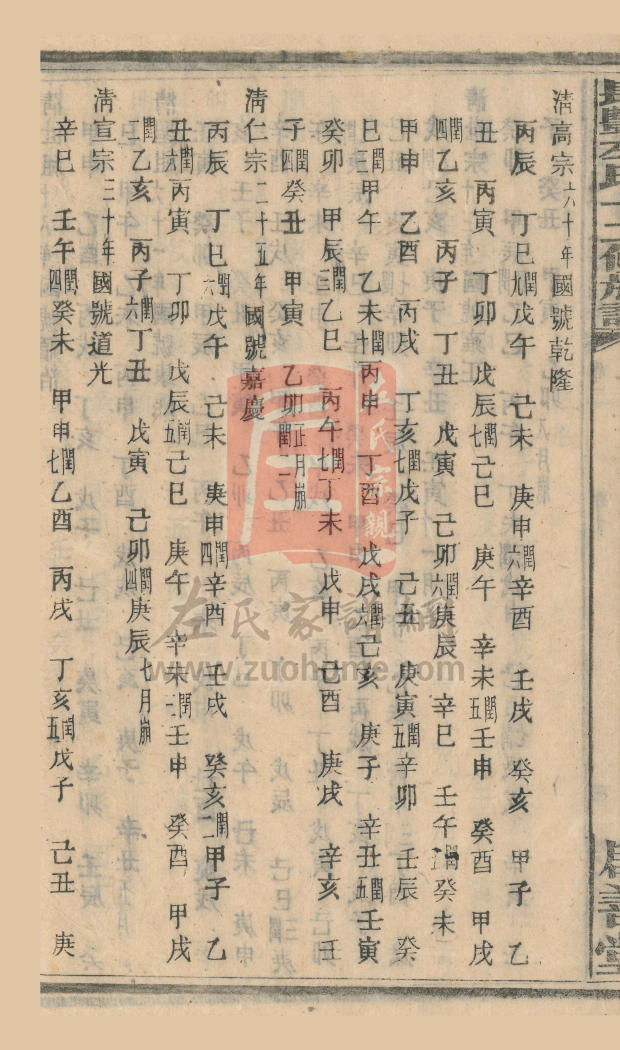 清高宗六十年國號乾隆
丙辰 丁巳閏九戊午 己未 庚申閏六辛酉 壬戌 癸亥 甲子 乙
丑 丙寅 丁卯 戊辰閏七己巳 庚午 辛未閏五壬申 癸酉 甲戌
閏四乙亥 丙子 丁丑 戊寅 己卯閏六庚辰 辛巳 壬午閏五癸未
甲申 乙酉 丙戌 丁亥閏七戊子 己丑 庚寅閏五辛卯 壬辰 癸
巳閏三甲午 乙未閏十丙申 丁酉 戊戌閏六己亥 庚子 辛丑閏五壬寅
癸卯 甲辰閏三乙巳 丙午閏七丁未 戊申 己酉 庚戌 辛亥 壬
子閏四癸丑 甲寅 乙卯正月崩閏二
清仁宗二十五年國號嘉慶
丙辰 丁巳閏六戊午 己未 庚申閏四辛酉 壬戌 癸亥閏二甲子 乙
丑閏六丙寅 丁卯 戊辰閏五己巳 庚午 辛未閏三壬申 癸酉 甲戌
閏二乙亥 丙子閏六丁丑 戊寅 己卯閏四庚辰七月崩
清宣宗三十年國號道光
辛巳 壬午閏四癸未 甲申閏七乙酉 丙戌 丁亥閏五戊子 己丑 庚
左氏宗親
左氏家譜網
www.zuohome.com